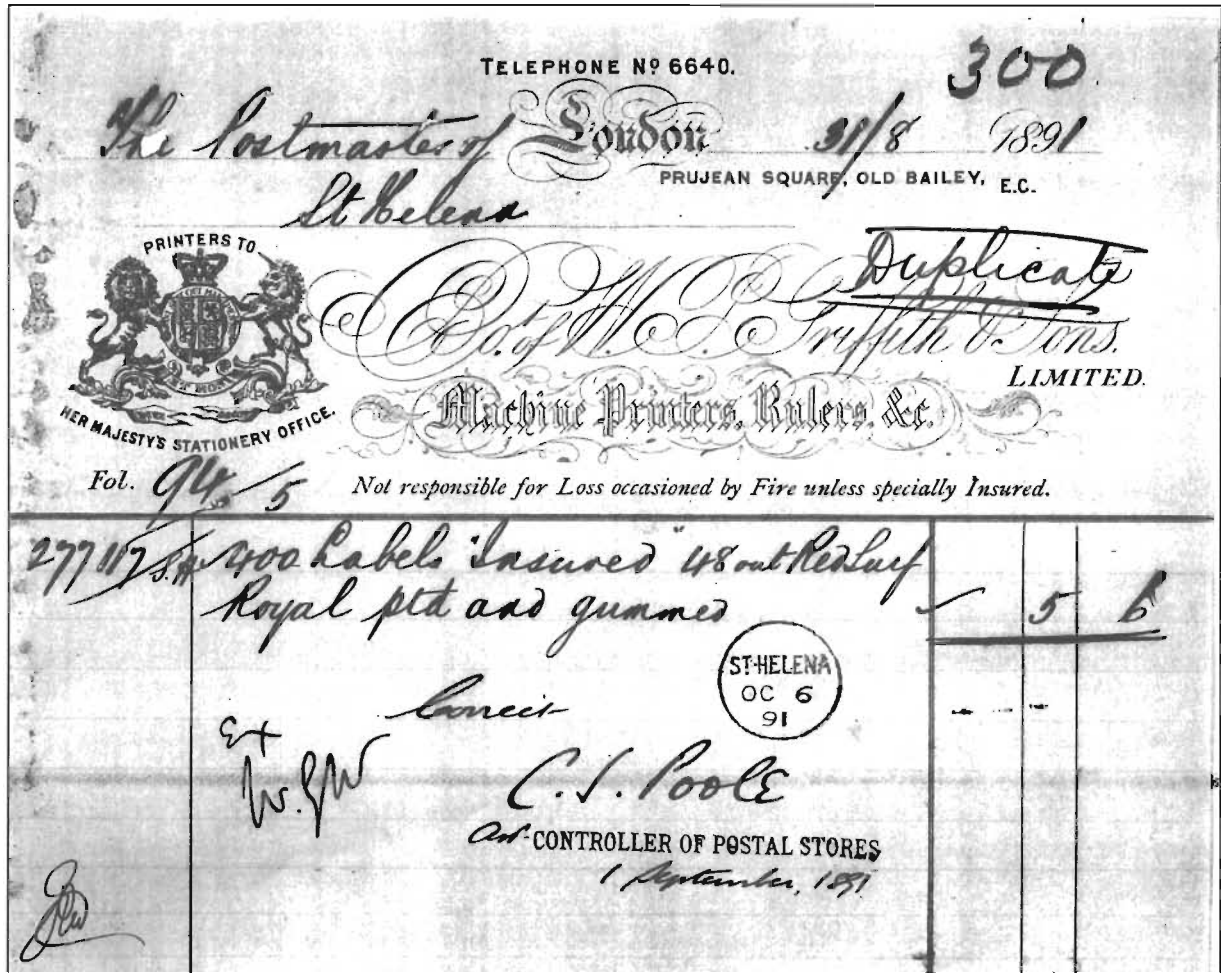 300
TELEPHONE Nº 6640.
The Postmaster of London 31/8 1891
PRUJEAN SQUARE, OLD BAILEY, E.C.
St Helena
PRINTERS TO
HER MAJESTY'S STATIONERY OFFICE.
Duplicate
W. P. Griffith & Sons.
LIMITED.
Machine Printers, Rulers, &c.
Fol. 94/5 Not responsible for Loss occasioned by Fire unless specially Insured.
400 Labels "Insured" 48 out Red Surf
Royal ptd and gummed 5 6
ST. HELENA
OC 6
91
Correct
Ex
C. S. Poole
CONTROLLER OF POSTAL STORES
1 September, 1891